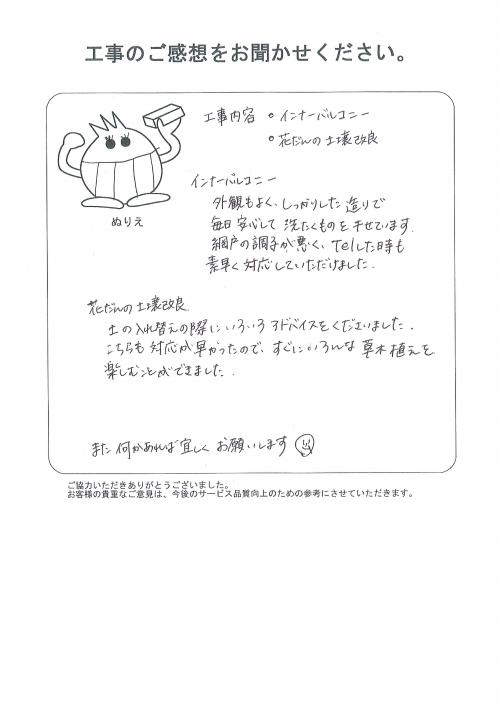 工事のご感想をお聞かせください。
工事内容 ○ インナーバルコニー
○ 花だんの土壌改良
ぬりえ
インナーバルコニー
外観もよく、しっかりした造りで
毎日安心して洗たくものを干せています。
網戸の調子が悪く、Telした時も
素早く対応していただけました。
花だんの土壌改良
土の入れ替えの際にいろいろアドバイスをくださいました。
こちらも対応が早かったので、すぐにいろんな草木植えを
楽しむことができました。
また何かあれば宜しくお願いします
ご協力いただきありがとうございました。
お客様の貴重なご意見は、今後のサービス品質向上のための参考にさせていただきます。